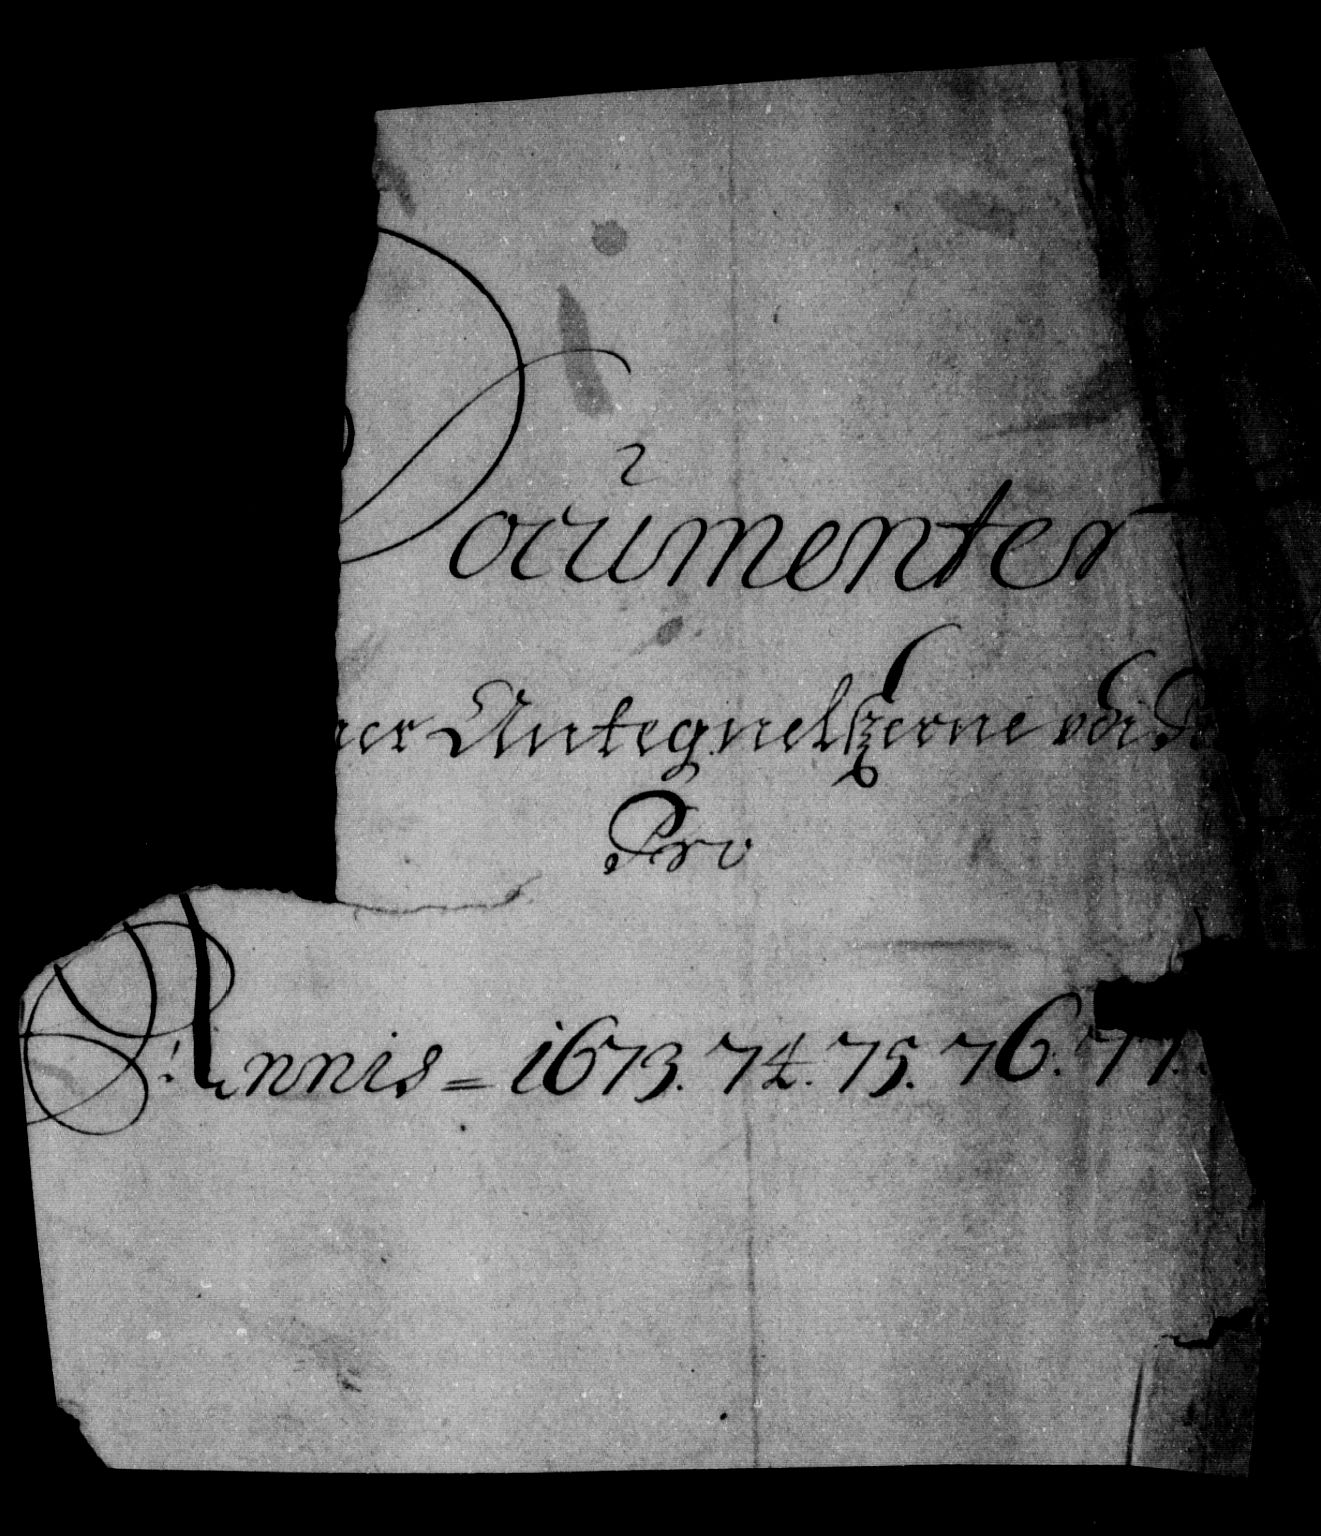 Documenter
Antegnelszerne
Pro
Annis = 1673. 74. 75. 76. 77.